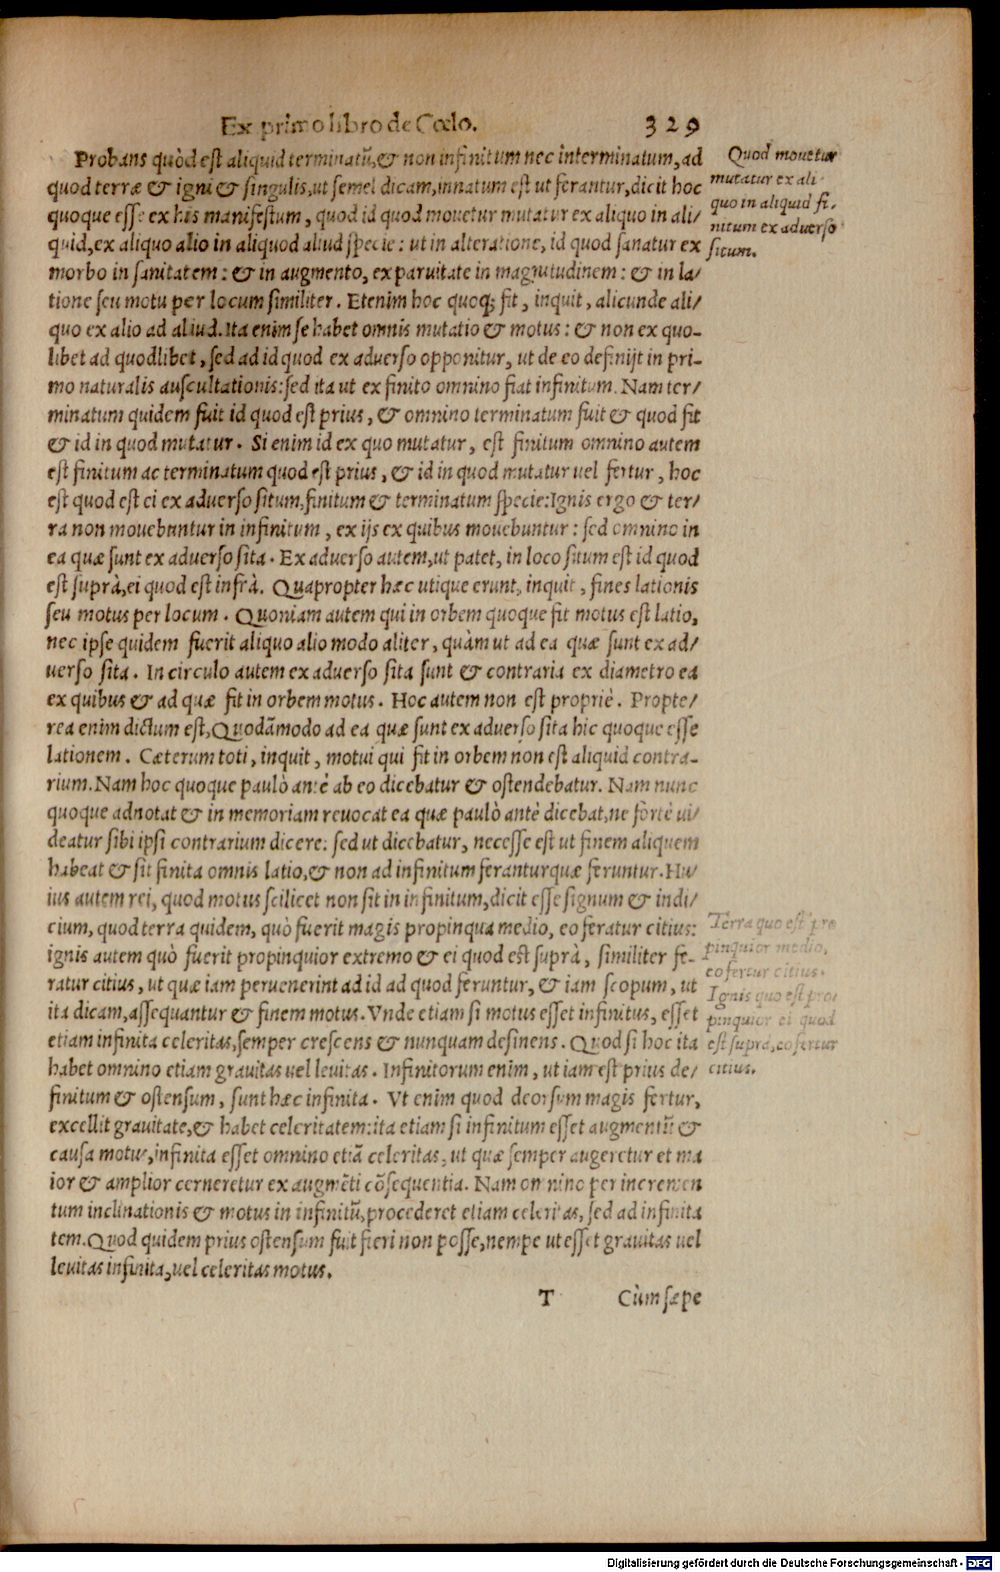 Ex primo libro de Cœlo. 329
Probans quòd est aliquid terminatū, & non infinitum nec interminatum, ad
quod terræ & igni & singulis, ut semel dicam, innatum est ut ferantur, dicit hoc
quoque esse ex his manifestum, quod id quod mouetur mutatur ex aliquo in ali/
quid, ex aliquo alio in aliquod aliud specie: ut in alteratione, id quod sanatur ex
morbo in sanitatem: & in augmento, ex paruitate in magnitudinem: & in la/
tione seu motu per locum similiter. Etenim hoc quoq; fit, inquit, alicunde ali/
quo ex alio ad aliud. Ita enim se habet omnis mutatio & motus: & non ex quo-
libet ad quodlibet, sed ad id quod ex aduerso opponitur, ut de eo definijt in pri-
mo naturalis auscultationis: sed ita ut ex finito omnino fiat infinitum. Nam ter/
minatum quidem fuit id quod est prius, & omnino terminatum fuit & quod fit
& id in quod mutatur. Si enim id ex quo mutatur, est finitum omnino autem
est finitum ac terminatum quod est prius, & id in quod mutatur uel fertur, hoc
est quod est ei ex aduerso situm, finitum & terminatum specie: Ignis ergo & ter/
ra non mouebuntur in infinitum, ex ijs ex quibus mouebuntur: sed omnino in
ea quæ sunt ex aduerso sita. Ex aduerso autem, ut patet, in loco situm est id quod
est suprà, ei quod est infrà. Quapropter hæc utique erunt, inquit, fines lationis
seu motus per locum. Quoniam autem qui in orbem quoque fit motus est latio,
nec ipse quidem fuerit aliquo alio modo aliter, quàm ut ad ea quæ sunt ex ad/
uerso sita. In circulo autem ex aduerso sita sunt & contraria ex diametro ea
ex quibus & ad quæ fit in orbem motus. Hoc autem non est propriè. Propte/
rea enim dictum est, Quodāmodo ad ea quæ sunt ex aduerso sita hic quoque esse
lationem. Cæterum toti, inquit, motui qui fit in orbem non est aliquid contra-
rium. Nam hoc quoque paulò antè ab eo dicebatur & ostendebatur. Nam nunc
quoque adnotat & in memoriam reuocat ea quæ paulò antè dicebat, ne fortè ui/
deatur sibi ipsi contrarium dicere: sed ut dicebatur, necesse est ut finem aliquem
habeat & sit finita omnis latio, & non ad infinitum feranturquæ feruntur. Hu/
ius autem rei, quod motus scilicet non sit in infinitum, dicit esse signum & indi/
cium, quod terra quidem, quò fuerit magis propinqua medio, eo feratur citius:
ignis autem quò fuerit propinquior extremo & ei quod est suprà, similiter fe-
ratur citius, ut quæ iam peruenerint ad id ad quod feruntur, & iam scopum, ut
ita dicam, assequantur & finem motus. Vnde etiam si motus esset infinitus, esset
etiam infinita celeritas, semper crescens & nunquam desinens. Quod si hoc ita
habet omnino etiam grauitas uel leuitas. Infinitorum enim, ut iam est prius de/
finitum & ostensum, sunt hæc infinita. Vt enim quod deorsum magis fertur,
excellit grauitate, & habet celeritatem: ita etiam si infinitum esset augmentū &
causa motus, infinita esset omnino etiā celeritas, ut quæ semper augeretur et ma
ior & amplior cerneretur ex augmēti cōsequentia. Nam omnino per incremen
tum inclinationis & motus in infinitū, procederet etiam celeritas, sed ad infinita
tem. Quod quidem prius ostensum fuit fieri non posse, nempe ut esset grauitas uel
leuitas infinita, uel celeritas motus.
T Cùm sæpe
Quod mouetur
mutatur ex ali
quo in aliquid fi.
nitum ex aduerso
situm.
Terra quo est pro
pinquior medio,
eo fertur citius.
Ignis quo est pro
pinquior ei quod
est suprà, eo fertur
citius.
Digitalisierung gefördert durch die Deutsche Forschungsgemeinschaft - DFG